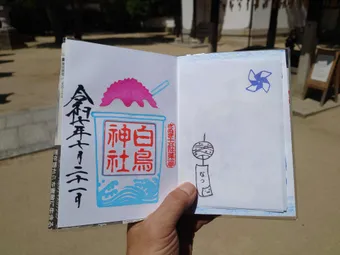 白鳥
神社
令和七年七月二十一日
なつ